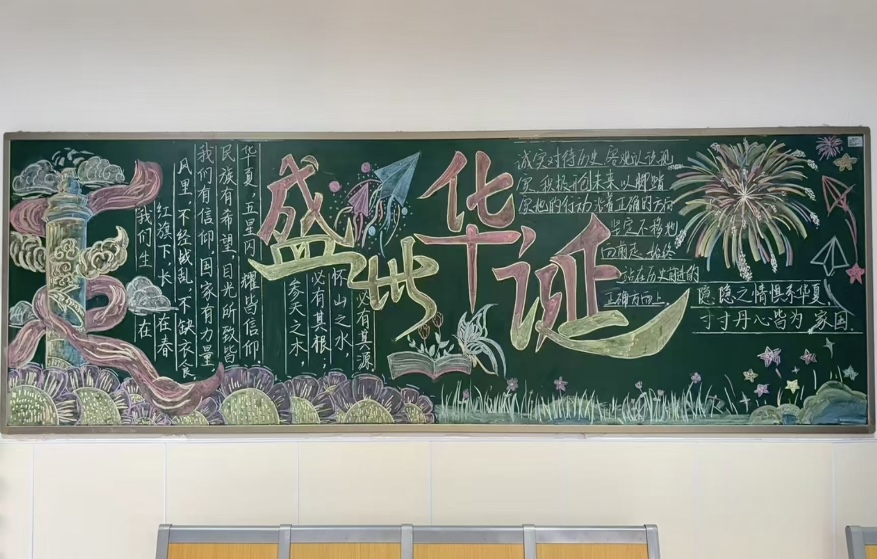 我们生在
红旗下 长在春
风里，不经战乱，不缺衣食
我们有信仰 国家有力量
民族有希望，目光所致皆
华夏，五星闪耀皆信仰
盛世华诞
参天之水，
必有其根；
怀山之水，
必有其源
诚实对待历史 客观认识现
创未来 以脚踏
的行动 沿着正确的方向
坚定不移地
向前走 始终
站在历史前进的
正确方向上
隐隐之情惧系华夏
寸寸丹心皆为家国